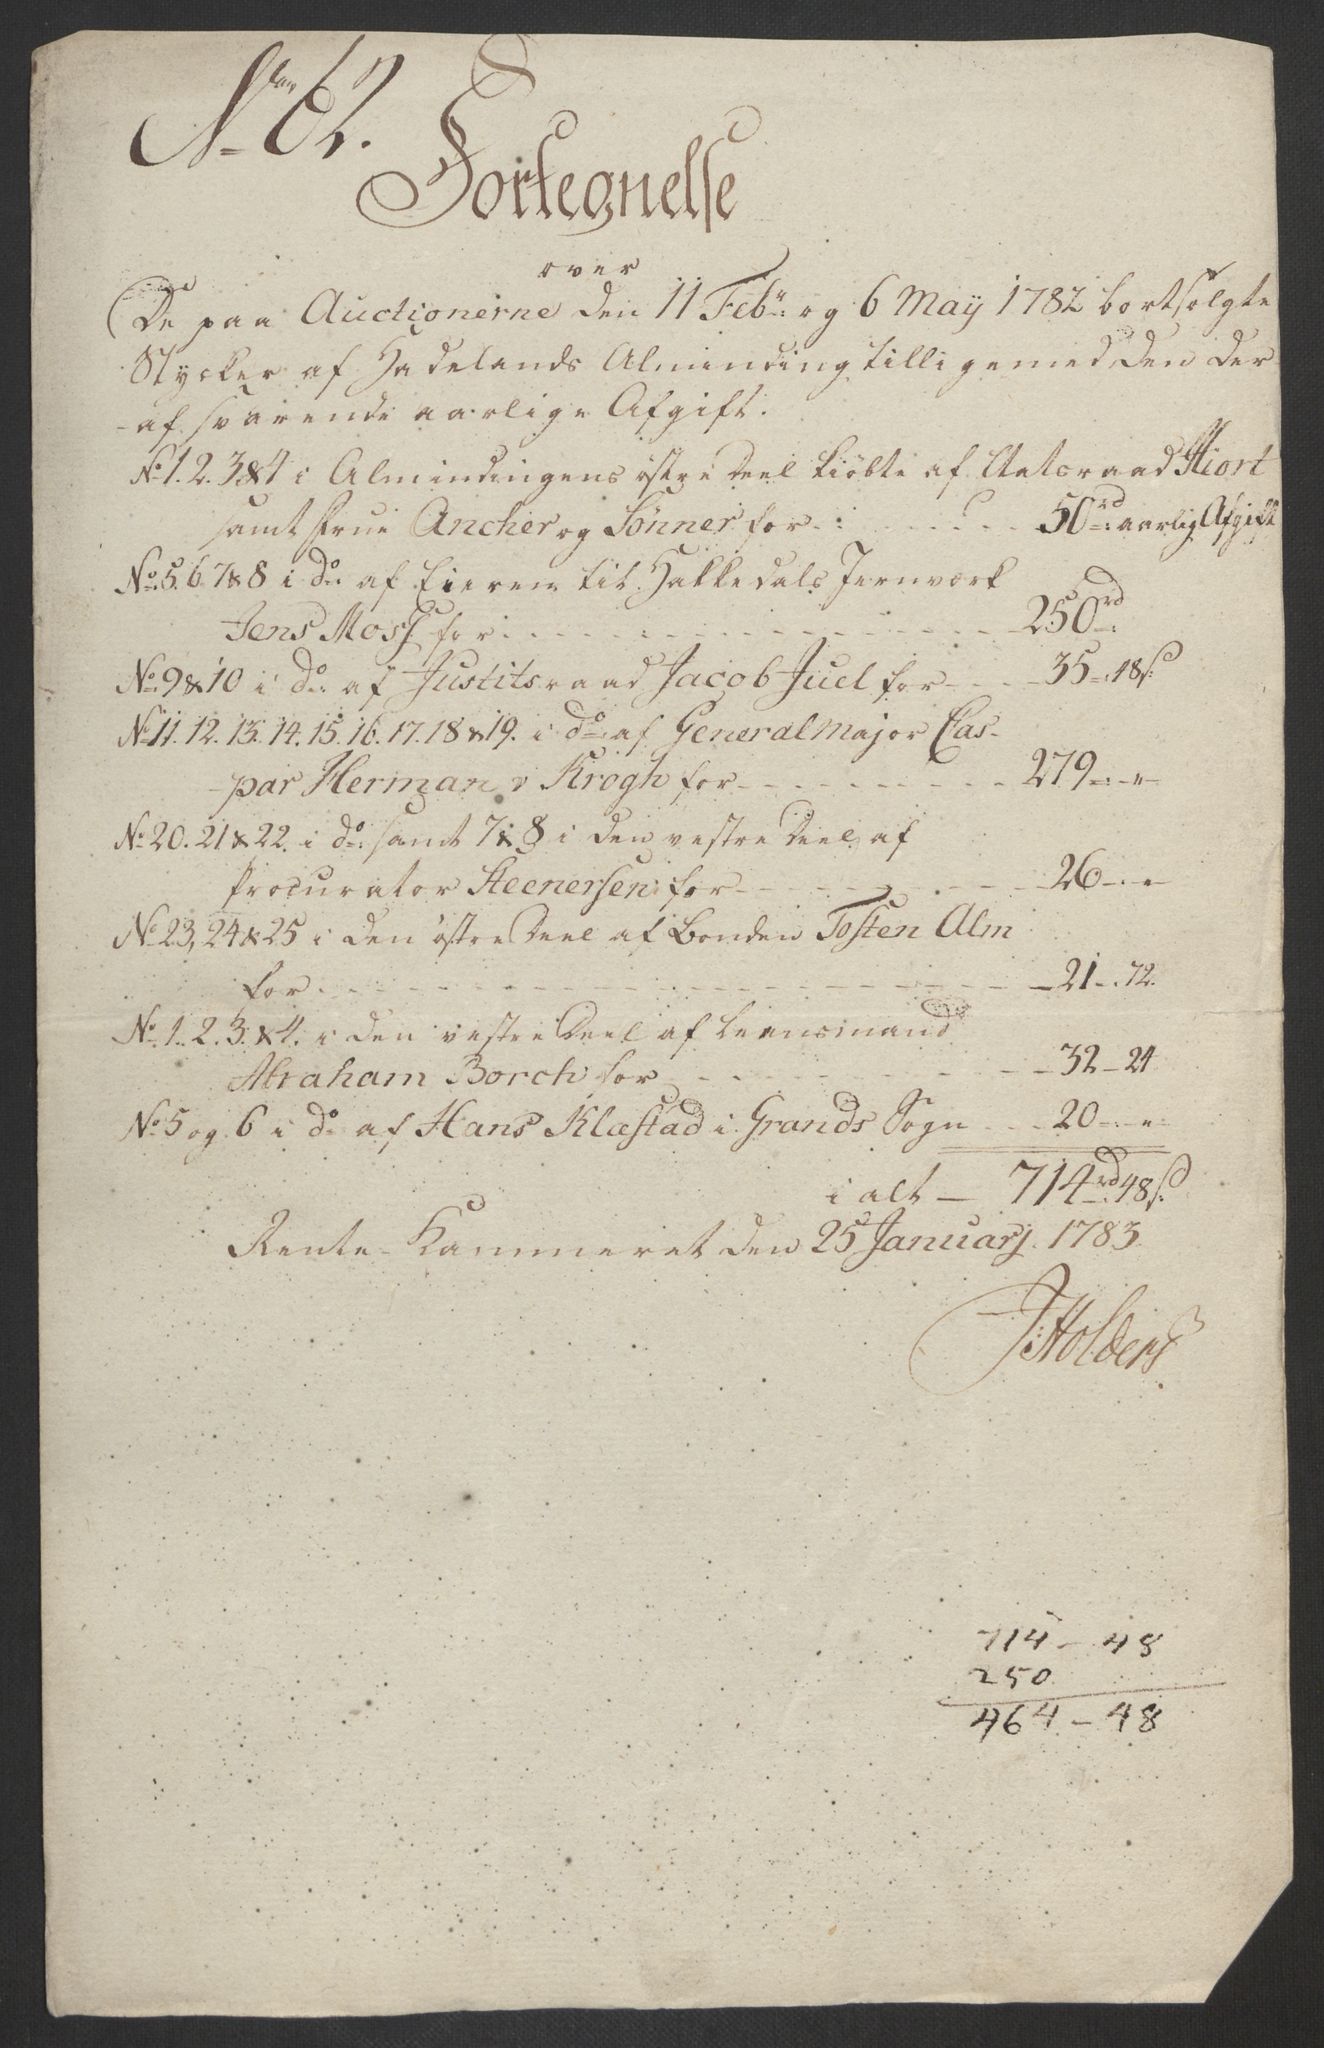 No 62.
Fortegnelse
over
De paa Auctionerne den 11 Febr: og 6 May 1782 bortsolgte
Stycker af Hadelands Alminding tilligemed den der
-af svarende aarlige Afgift.
No 1. 2. 3 & 4 i Almindingens østre Deel kiøbte af Etatsraad Hiort
samt Frue Ancher og Sønner for . . . . 50 rd: aarlig Afgift
No: 5. 6. 7 & 8 i do: af Eieren til Hakkedals Jernværk
Jens Moss for . . . . 250 rd:
No: 9 & 10 i do: af Justitsraad Jacob Juel for - - - 35 -: 48 s:
No 11. 12. 13. 14. 15. 16. 17. 18 & 19. i do: af Generalmajor Cas-
par Herman v Krogh for - - - - 279 -:- " -
No: 20. 21 & 22. i do: samt 7 & 8 i den vestre Deel af
Procurator Steenersen for - - - - 26 -:- " -
No 23, 24 & 25 i den østre Deel af Bonden Tosten Alm
for . - - - - 21 -. 72.
No: 1. 2. 3. & 4. i den vestre Deel af Leensmand
Abraham Borch for - - - - 32 - 24
No: 5 og 6 i do af Hans Klæstad i Grands Sogn - - - 20 -:- " -
i alt - 714 rd: 48 s:
Rente-Kammeret den 25 Januarj 1783
J Holders
714 - 48
250
464 - 48